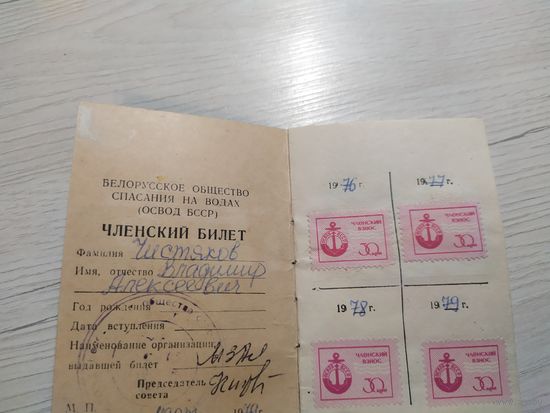 БЕЛОРУССКОЕ ОБЩЕСТВО
СПАСАНИЯ НА ВОДАХ
(ОСВОД БССР)
ЧЛЕНСКИЙ БИЛЕТ
Фамилия Чистяков
Имя, отчество Владимир
Алексеевич
Год рождения
Дата вступления
Наименование организации,
выдавшей билет
Председатель
совета
М. П.
1976 г.
1977 г.
ЧЛЕНСКИЙ
ВЗНОС
30 коп
ЧЛЕНСКИЙ
ВЗНОС
30 коп
1978 г.
1979 г.
ЧЛЕНСКИЙ
ВЗНОС
30 коп
ЧЛЕНСКИЙ
ВЗНОС
30 коп